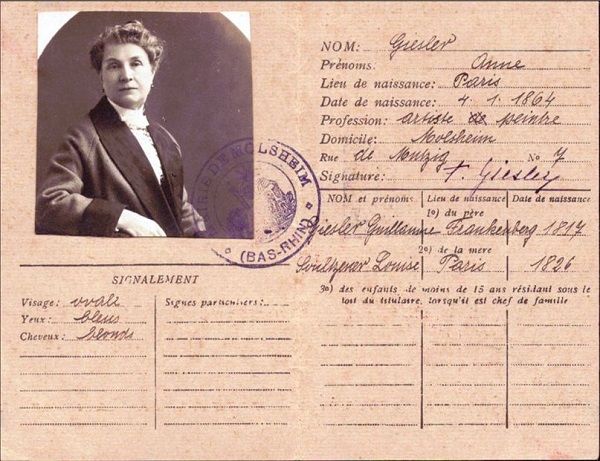 NOM: Giesler
Prénoms. Anne
Lieu de naissance: Paris
Date de naissance: 4. 1. 1864
Profession: artiste de peintre
Domicile: Molsheim
Rue de Mutzig No 7
Signature: Giesler
MOLSHEIM
(BAS-RHIN)
NOM et prénoms Lieu de naissance Date de naissance
1o) du père
Giesler Guillaume Frankenberg 1817
2o) de la mère
Louise Paris 1826
3o) des enfants de moins de 15 ans résidant sous le
toit du titulaire, lorsqu'il est chef de famille
SIGNALEMENT
Visage: ovale
Yeux: bleus
Cheveux: blonds
Signes particuliers: